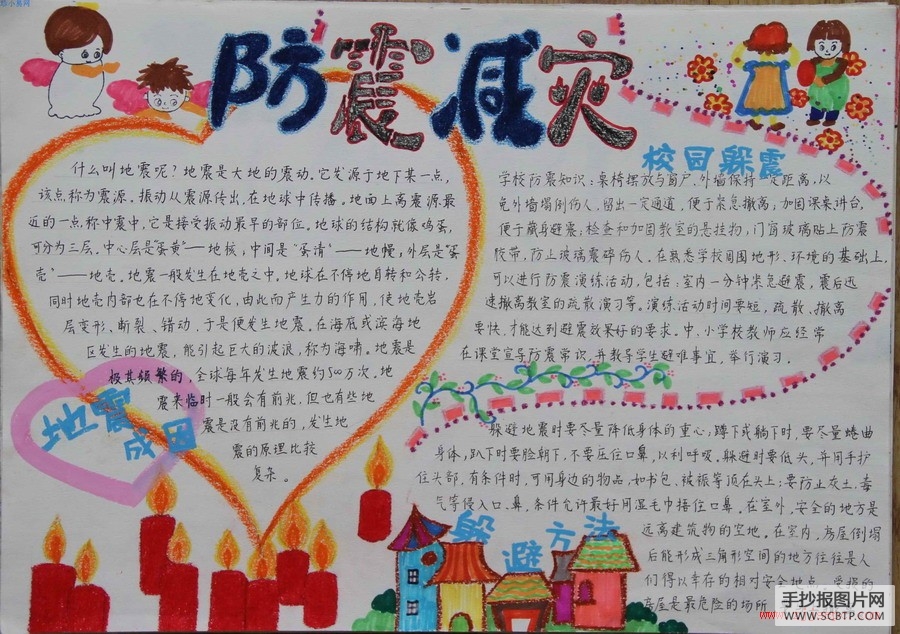 防震减灾
什么叫地震呢？地震是大地的震动。它发源于地下某一点，
该点称为震源。振动从震源传出，在地球中传播。地面上离震源最
近的一点称中震中，它是接受振动最早的部位。地球的结构就像鸡蛋，
可分为三层。中心层是"蛋黄"——地核，中间是"蛋清"——地幔，外层是"蛋
壳"——地壳。地震一般发生在地壳之中。地球在不停地自转和公转，
同时地壳内部也在不停地变化，由此而产生力的作用，使地壳岩
层变形、断裂、错动，于是便发生地震。在海底或滨海地
区发生的地震，能引起巨大的波浪，称为海啸。地震是
极其频繁的，全球每年发生地震约500万次。地
震来临时一般会有前兆，但也有些地
震是没有前兆的，发生地
震的原理比较
复杂。
地震
成因
校园躲震
学校防震知识：桌椅摆放与窗户、外墙保持一定距离，以
免外墙塌倒伤人，留出一定通道，便于紧急撤离；加固课桌讲台，
便于藏身避震；检查和加固教室的悬挂物，门窗玻璃贴上防震
胶带，防止玻璃震碎伤人。在熟悉学校周围地形、环境的基础上，
可以进行防震演练活动，包括：室内一分钟紧急避震，震后迅
速撤离教室的疏散演习等。演练活动时间要短，疏散、撤离
要快，才能达到避震效果好的要求。中、小学校教师应经常
在课堂宣导防震常识，并教导学生避难事宜，举行演习。
躲避地震时要尽量降低身体的重心；蹲下或躺下时，要尽量蜷曲
身体，趴下时要脸朝下，不要压住口鼻，以利呼吸。躲避时要低头，并用手护
住头部，有条件时，可用身边的物品，如书包、被褥等顶在头上；要防止灰土、毒
气等侵入口、鼻，条件允许最好用湿毛巾捂住口鼻。在室外，安全的地方是
远离建筑物的空地。在室内，房屋倒塌
后能形成三角形空间的地方往往是人
们得以幸存的相对安全地点
房屋是最危险的场所
躲避方法
手抄报图片网
WWW.SCBTP.COM